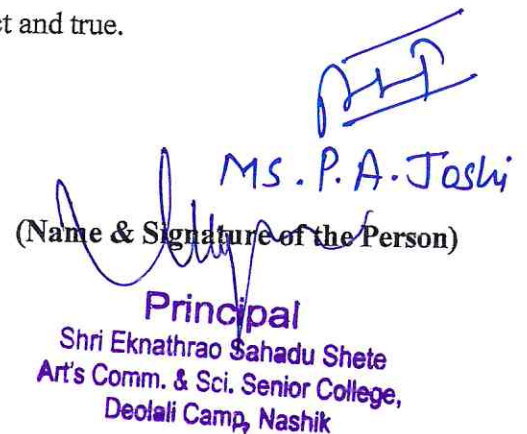 ct and true.
MS. P. A. Joshi
(Name & Signature of the Person)
Principal
Shri Eknathrao Sahadu Shete
Art's Comm. & Sci. Senior College,
Deolali Camp, Nashik